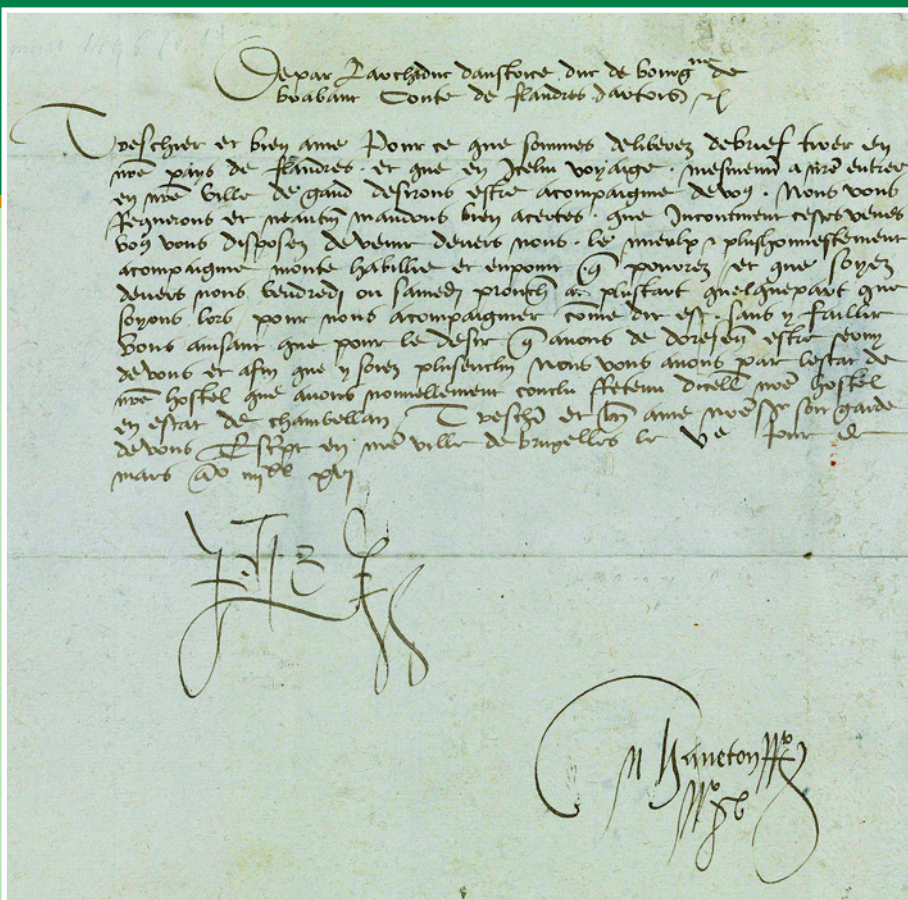 De par Larchiduc daustrice duc de bourgne de
brabant Conte de flandres dartois
Treschier et bien ame Pour ce que sommes deliberez de brief tirer en
nre pays de flandres et que en Icelui voyaige mesmemt a nre entree
en nre ville de gand desirons estre acompaigne de vo9 Nous vous
Requerons et neantm mandons bien acertes que Incontinent cestes veues
vo9 vous disposez de venir devers nous le mieulx plushonnestement
acompaigne monte habillie et enpoint q pourrez et que soyez
devers nous vendredi ou samedi prouch au plustart quelquepart que
soyons lors pour nous acompaignier come dit est sans y faillir
Vous advisant que pour le desir q avons de doresen estre servy
de vous et afin que y soiez plusenclin Nous vous avons par lestat de
nre hostel que avons nouvellement conclu Retenu dicelle nre hostel
en estat de chambellan Treschr et bn ame nre Sr soit garde
de vous Escpt en nre ville de bruxelles le ve Jour de
mars
Haneton